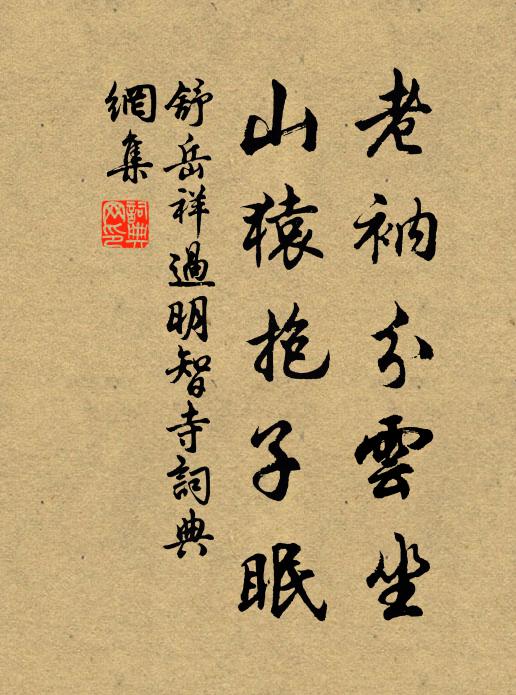 老衲分雲坐
山猿抱子眠
舒岳祥過明智寺詞典
網集
詞典
网印